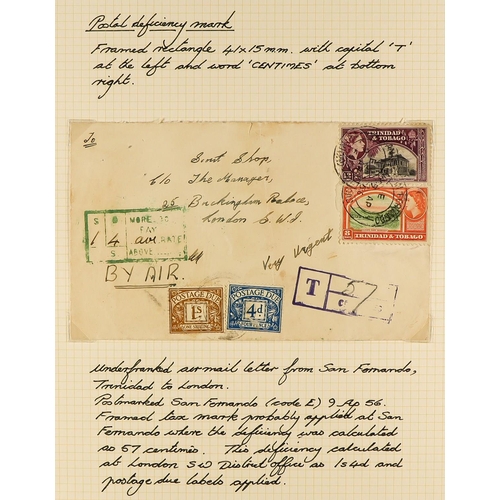 Postal deficiency mark
Framed rectangle 41x15mm. with capital 'T'
at the left and word 'CENTIMES' at bottom
right.
To
Gint Shop,
c/o The Manager,
Buckingham Palace,
London S.W.1.
Very Urgent
BY AIR.
S D
1 4
S
MORE TO
PAY
AIR RATE
ABOVE
TRINIDAD & TOBAGO
8
TRINIDAD & TOBAGO
POSTAGE DUE
1s
POSTAGE DUE
4d
T
57
Underfranked airmail letter from San Fernando,
Trinidad to London.
Postmarked San Fernando (code E) 9 Ap 56.
Framed tax mark probably applied at San
Fernando where the deficiency was calculated
as 57 centimes. This deficiency calculated
at London SW District Office as 1s4d and
postage due labels applied.